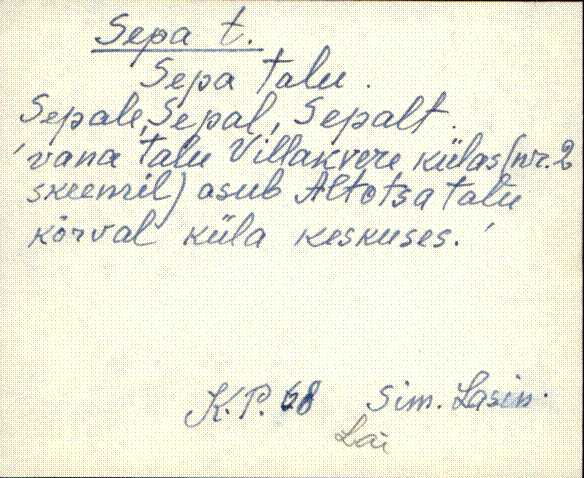 Sepa t.
Sepa talu.
Sepale, Sepal, Sepalt.
'vana talu Villakvere külas (nr. 2
skeemil) asub Altotsa talu
kõrval küla keskuses.'
K.P. 68 Sim. Lasin.
Lai